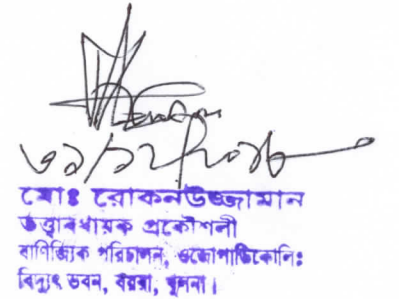 মোঃ রোকনউজ্জামান
তত্ত্বাবধায়ক প্রকৌশলী
বাণিজ্যিক পরিচালন, ওজোপাডিকোলিঃ
বিদ্যুৎ ভবন, বয়রা, খুলনা।